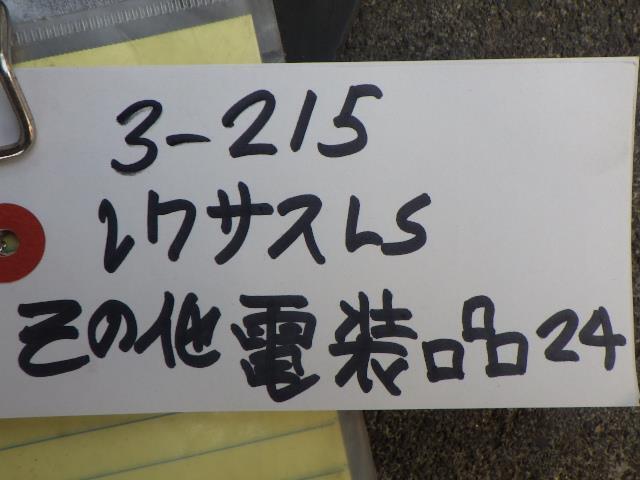 3-215
レクサスLS
その他電装品24